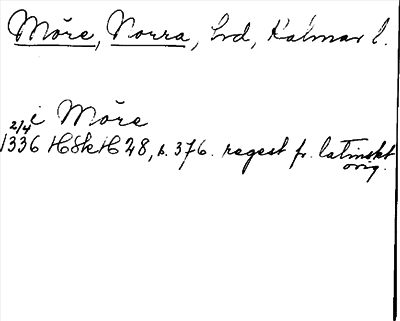 Möre, Norra, hrd, Kalmar l.
i Möre
2/4
1336 HSkH 28, s. 376. regest fr. latinskt
orig.